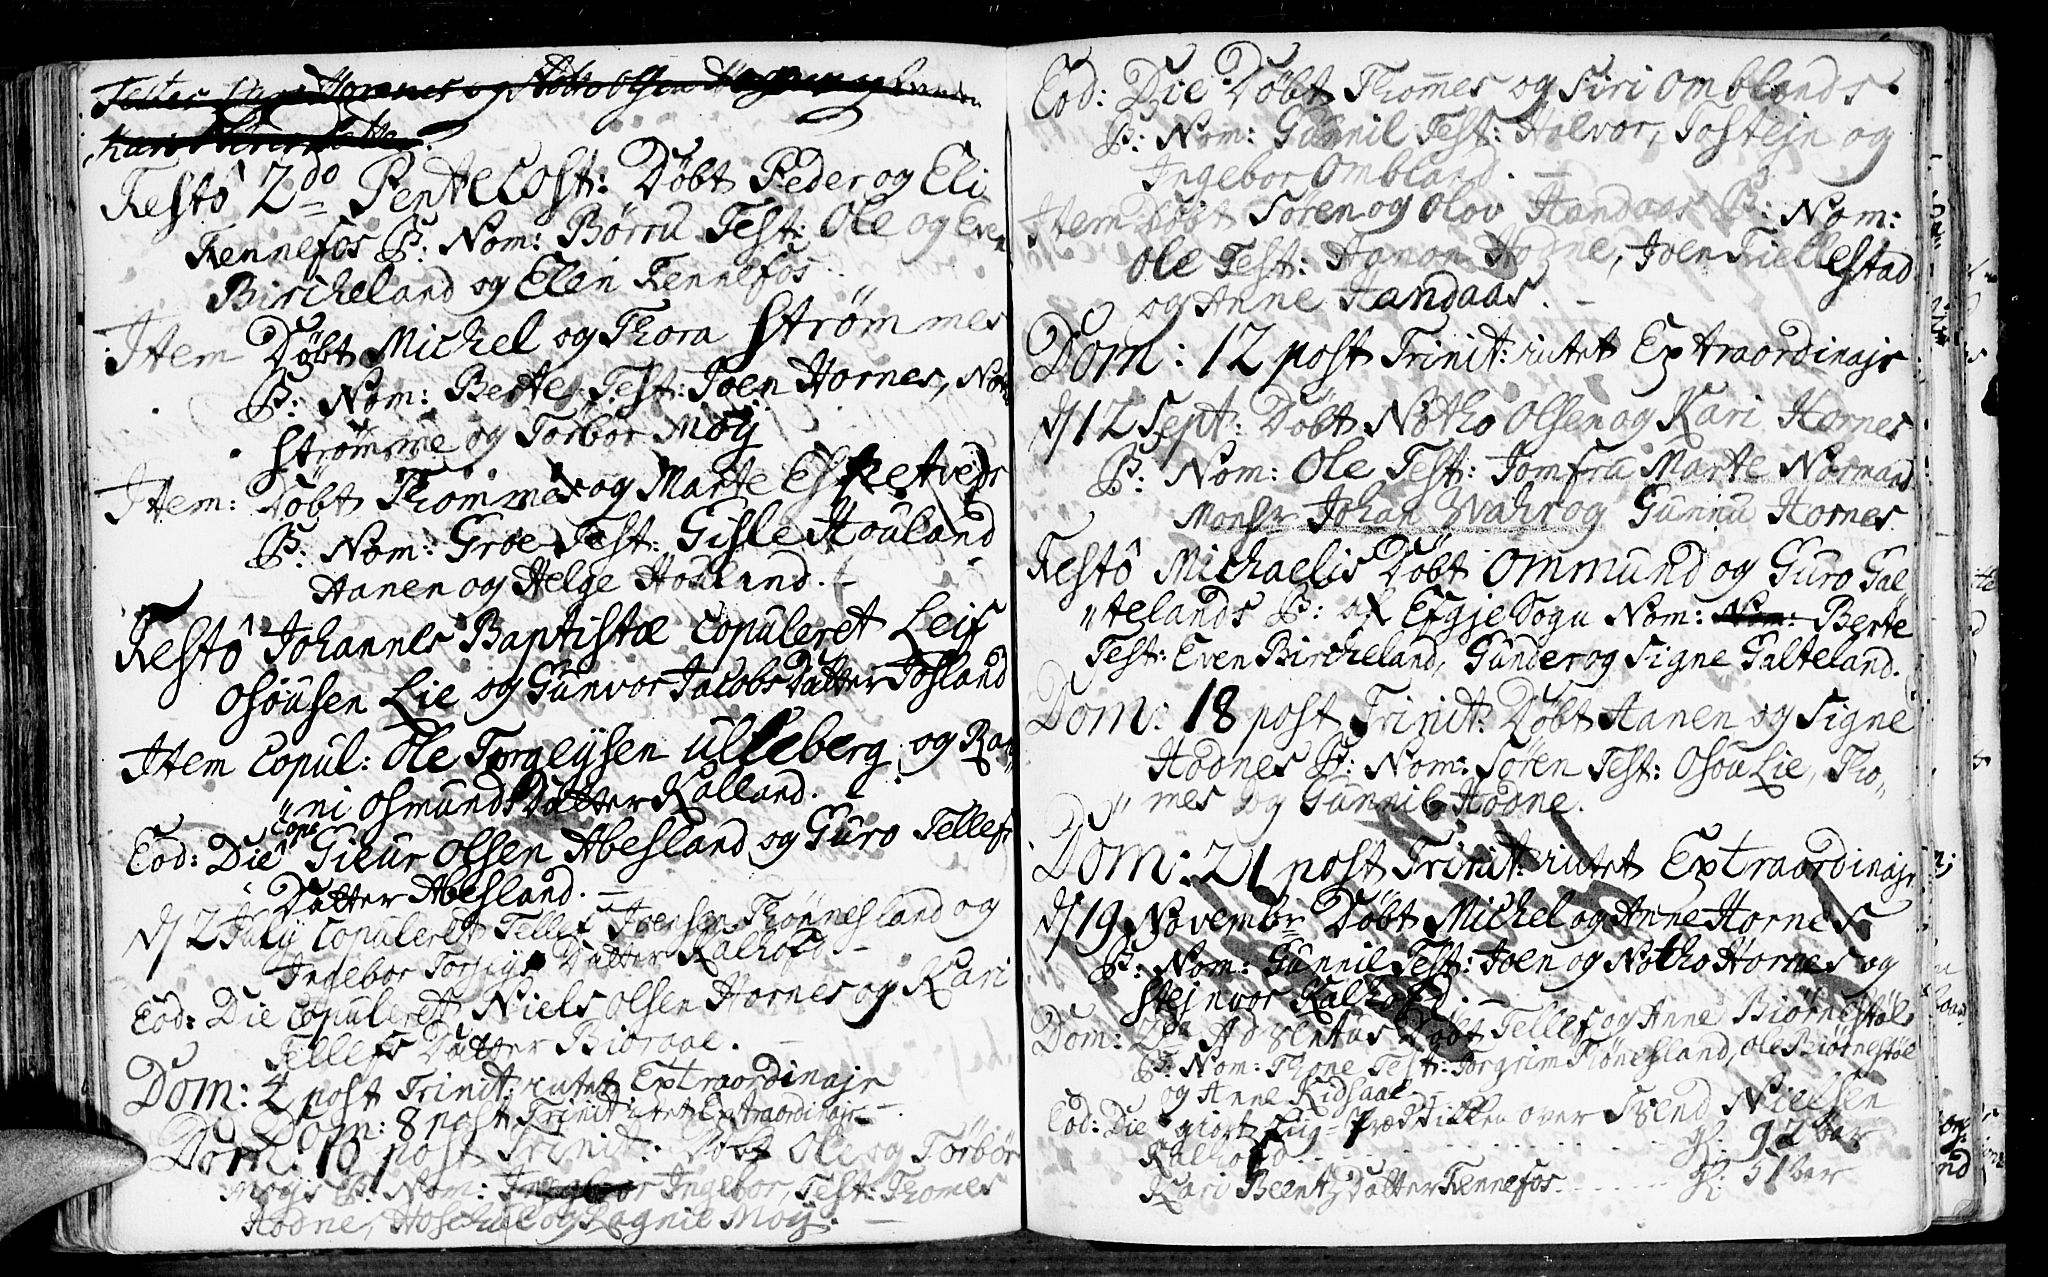 Kari
Festô 2do Pentecost: Døbt Peder og Eli
Fennefos P: Nom: Børru Test: Ole og Even
Bircheland og Elen Fennefos
Item Døbt Michel og Thora Strømmes
P: Nom: Berte Test: Joen Hornes,
Strømme og Torbor Møÿ
Item: Døbt Thommes og Marte Esketvejt
P: Nom: Groe Test: Gisle Houland
Aanen og Helge Houland.
Festô Johannes Baptistæ Copuleret Leif
Osousen Lie og Gunvor Jacobs Datter Fosland
Item Copul: Ole Torgeÿsen Ulleberg og Ra„
„ni Osmunds Datter Kalland.
Eod: Die Cop: Gieur Olsen Abesland og Guro Tellefs
Datter Abesland. —
d/ 2 Julÿ Copuleret Tellef Joensen Thønnesland og
Ingebor Datter Kalhovd —
Eod: Die Copuleret Niels Olsen Hornes og Kari
Tellefs Datter Bioraae. —
Dom: 4 post Trinit: rutet Extraordinajr
Dom: 8 post Trinit: rutet Extraordinajr —.
Dom: 10 post Trinit: Døbt Ole og Torbør
Moÿs P: Nom: Ingebor, Test: Thomes
Hodne, og Ragnil Moÿ. —
Eod: Die Døbt Thomes og Siri Omblands
P: Nom: Gunnil Test: Halvor, Tostejn og
Ingebor Ombland. —
Item Døbt Søren og Olov Handaas P: Nom:
Ole Test: Aanon Hodne, Joen Triellestad
og Anne Handaas. —
Dom: 12 post Trinit: rutet Extraordinajr
d/ 12 Sept: Døbt Notho Olsen og Kari Hornes
P: Nom: Ole Test: Jomfru Marte Normand
Monsr Johan Wahr og Gunnu Hornes
Festô Michaelis Døbt Ommund og Guro Gal„
„telands P: af Efgje Sogn Nom: Berte
Test: Even Bircheland, Gunder og Signe Galteland.
Dom: 18 post Trinit: Døbt Aanen og Signe
Hodnes P: Nom: Søren Test: Osou Lie, Tho„
„mes og Gunnil Hodne.
Dom: 21 post Trinit: rutet Extraordinajr
d/ 19 Novembr Døbt Michel og Anne Hornes
P: Nom: Gunnil Test: Joen og Notho Hornes og
Stejnvor Kalhovd. —
Dom: 2da Adventus Døbt Tellef og Anne Biørnestøl
P: Nom: Thone Test: Torgrim Tlønesland, Ole Biørnestøl
og Anne Ridsaae —
Eod: Die giort Liig-Prædikken over Svend Nielsen
Kalhovd . . . . . . . . gl: 92 aar
Kari Beentz Datter Fennefos . . . . . . gl: 51 aar